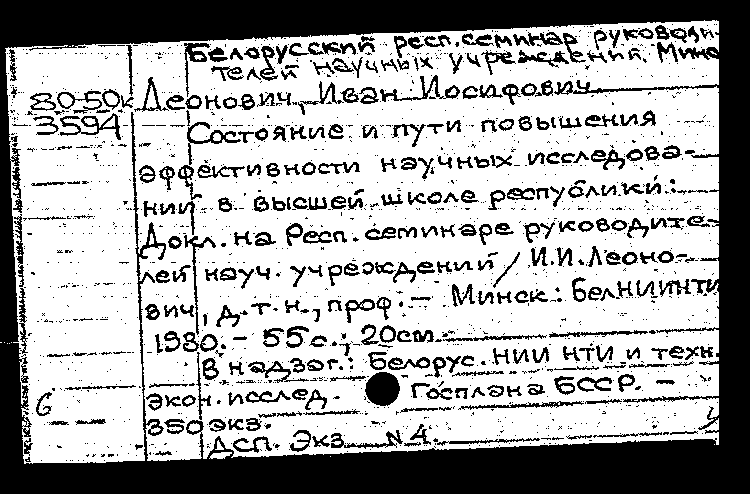 Белорусский респ. семинар руководи-
телей научных учреждений. Минс
80-50к Леонович, Иван Иосифович.
3594 Состояние и пути повышения
эффективности научных исследова-
ний в высшей школе республики :
Докл. на Респ. семинаре руководите-
лей науч. учреждений / И.И. Леоно-
вич, д.т.н., проф. - Минск : БелНИИНТИ
1980. - 55 с. ; 20см. -
В надзаг.: Белорус. НИИ НТИ и техн.
6 экон. исслед. Госплана БССР. -
350 экз.
ДСП. Экз. N 4.